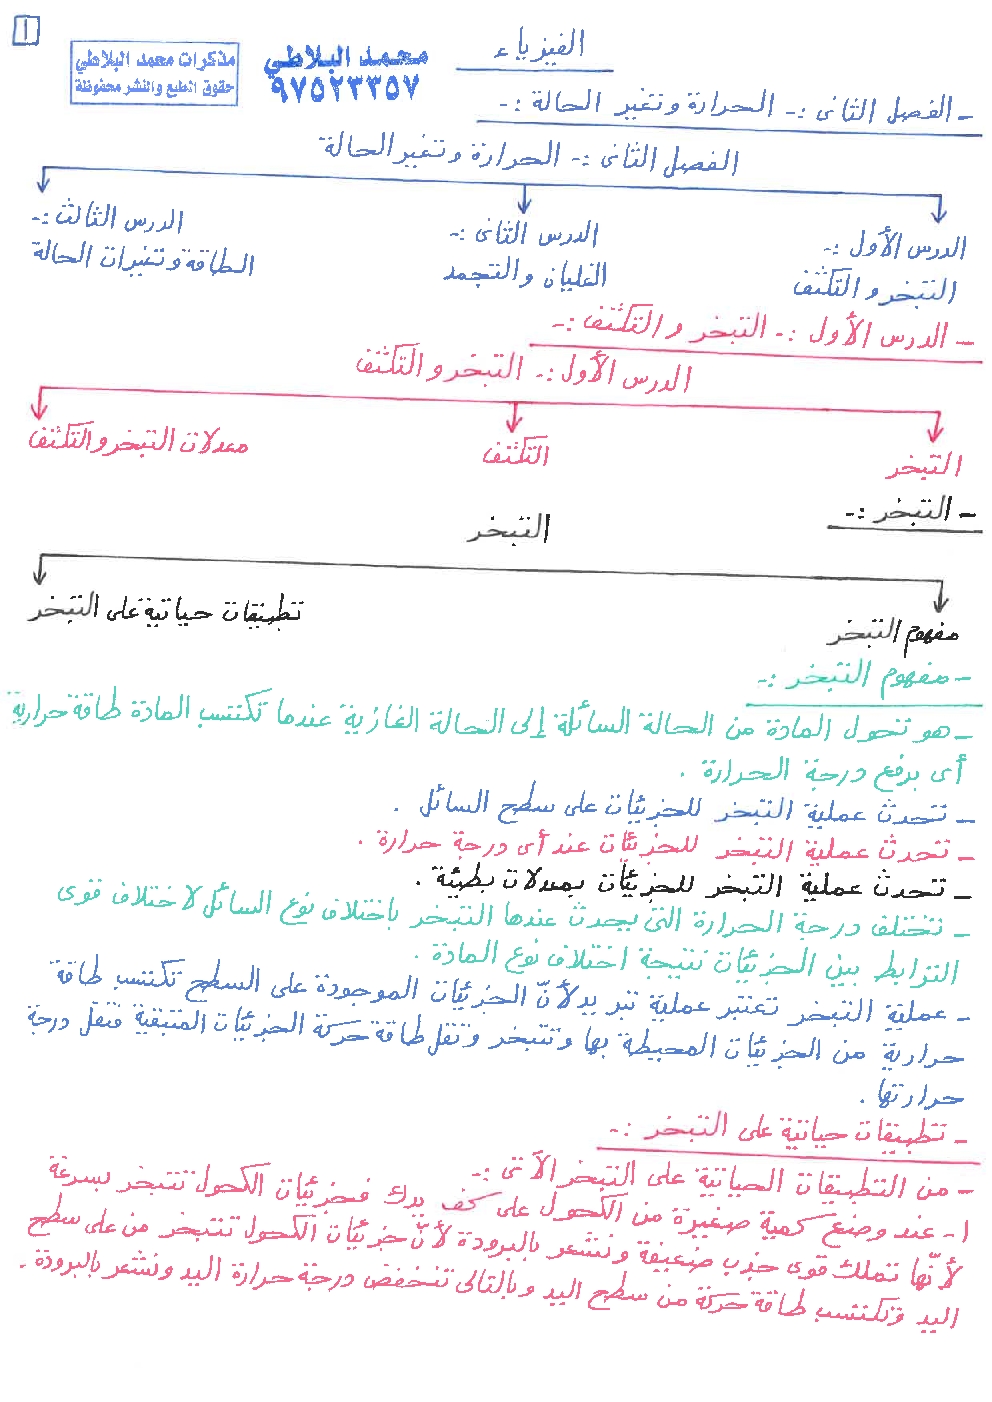 ١
مذكرات محمد البلاطي
حقوق الطبع والنشر محفوظة
محمد البلاطي
٩٧٥٢٣٣٥٧
الفيزياء
- الفصل الثانى :- الحرارة وتغير الحالة :-
الفصل الثانى :- الحرارة وتغير الحالة
الدرس الأول :-
التبخر و التكثف
الدرس الثانى :-
الغليان والتجمد
الدرس الثالث :-
الطاقة وتغيرات الحالة
- الدرس الأول :- التبخر و التكثف :-
الدرس الأول :- التبخر و التكثف
التبخر
التكثف
معدلات التبخر والتكثف
- التبخر :-
التبخر
مفهوم التبخر
تطبيقات حياتية على التبخر
- مفهوم التبخر :-
- هو تحول المادة من الحالة السائلة إلى الحالة الغازية عندما تكتسب المادة طاقة حرارية
أى برفع درجة الحرارة .
- تحدث عملية التبخر للجزيئات على سطح السائل .
- تحدث عملية التبخر للجزيئات عند أى درجة حرارة .
- تحدث عملية التبخر للجزيئات بمعدلات بطيئة .
- تختلف درجة الحرارة التى يحدث عندها التبخر باختلاف نوع السائل لاختلاف قوى
الترابط بين الجزيئات نتيجة اختلاف نوع المادة .
- عملية التبخر تعتبر عملية تبريد لأنّ الجزيئات الموجودة على السطح تكتسب طاقة
حرارية من الجزيئات المحيطة بها وتتبخر وتقل طاقة حركة الجزيئات المتبقية فتقل درجة
حرارتها .
- تطبيقات حياتية على التبخر :-
- من التطبيقات الحياتية على التبخر الآتى :-
١- عند وضع كمية صغيرة من الكحول على كف يدك فجزيئات الكحول تتبخر بسرعة
لأنّها تملك قوى جذب ضعيفة ونشعر بالبرودة لأنّ جزيئات الكحول تتبخر من على سطح
اليد وتكتسب طاقة حركة من سطح اليد وبالتالى تنخفض درجة حرارة اليد ونشعر بالبرودة .